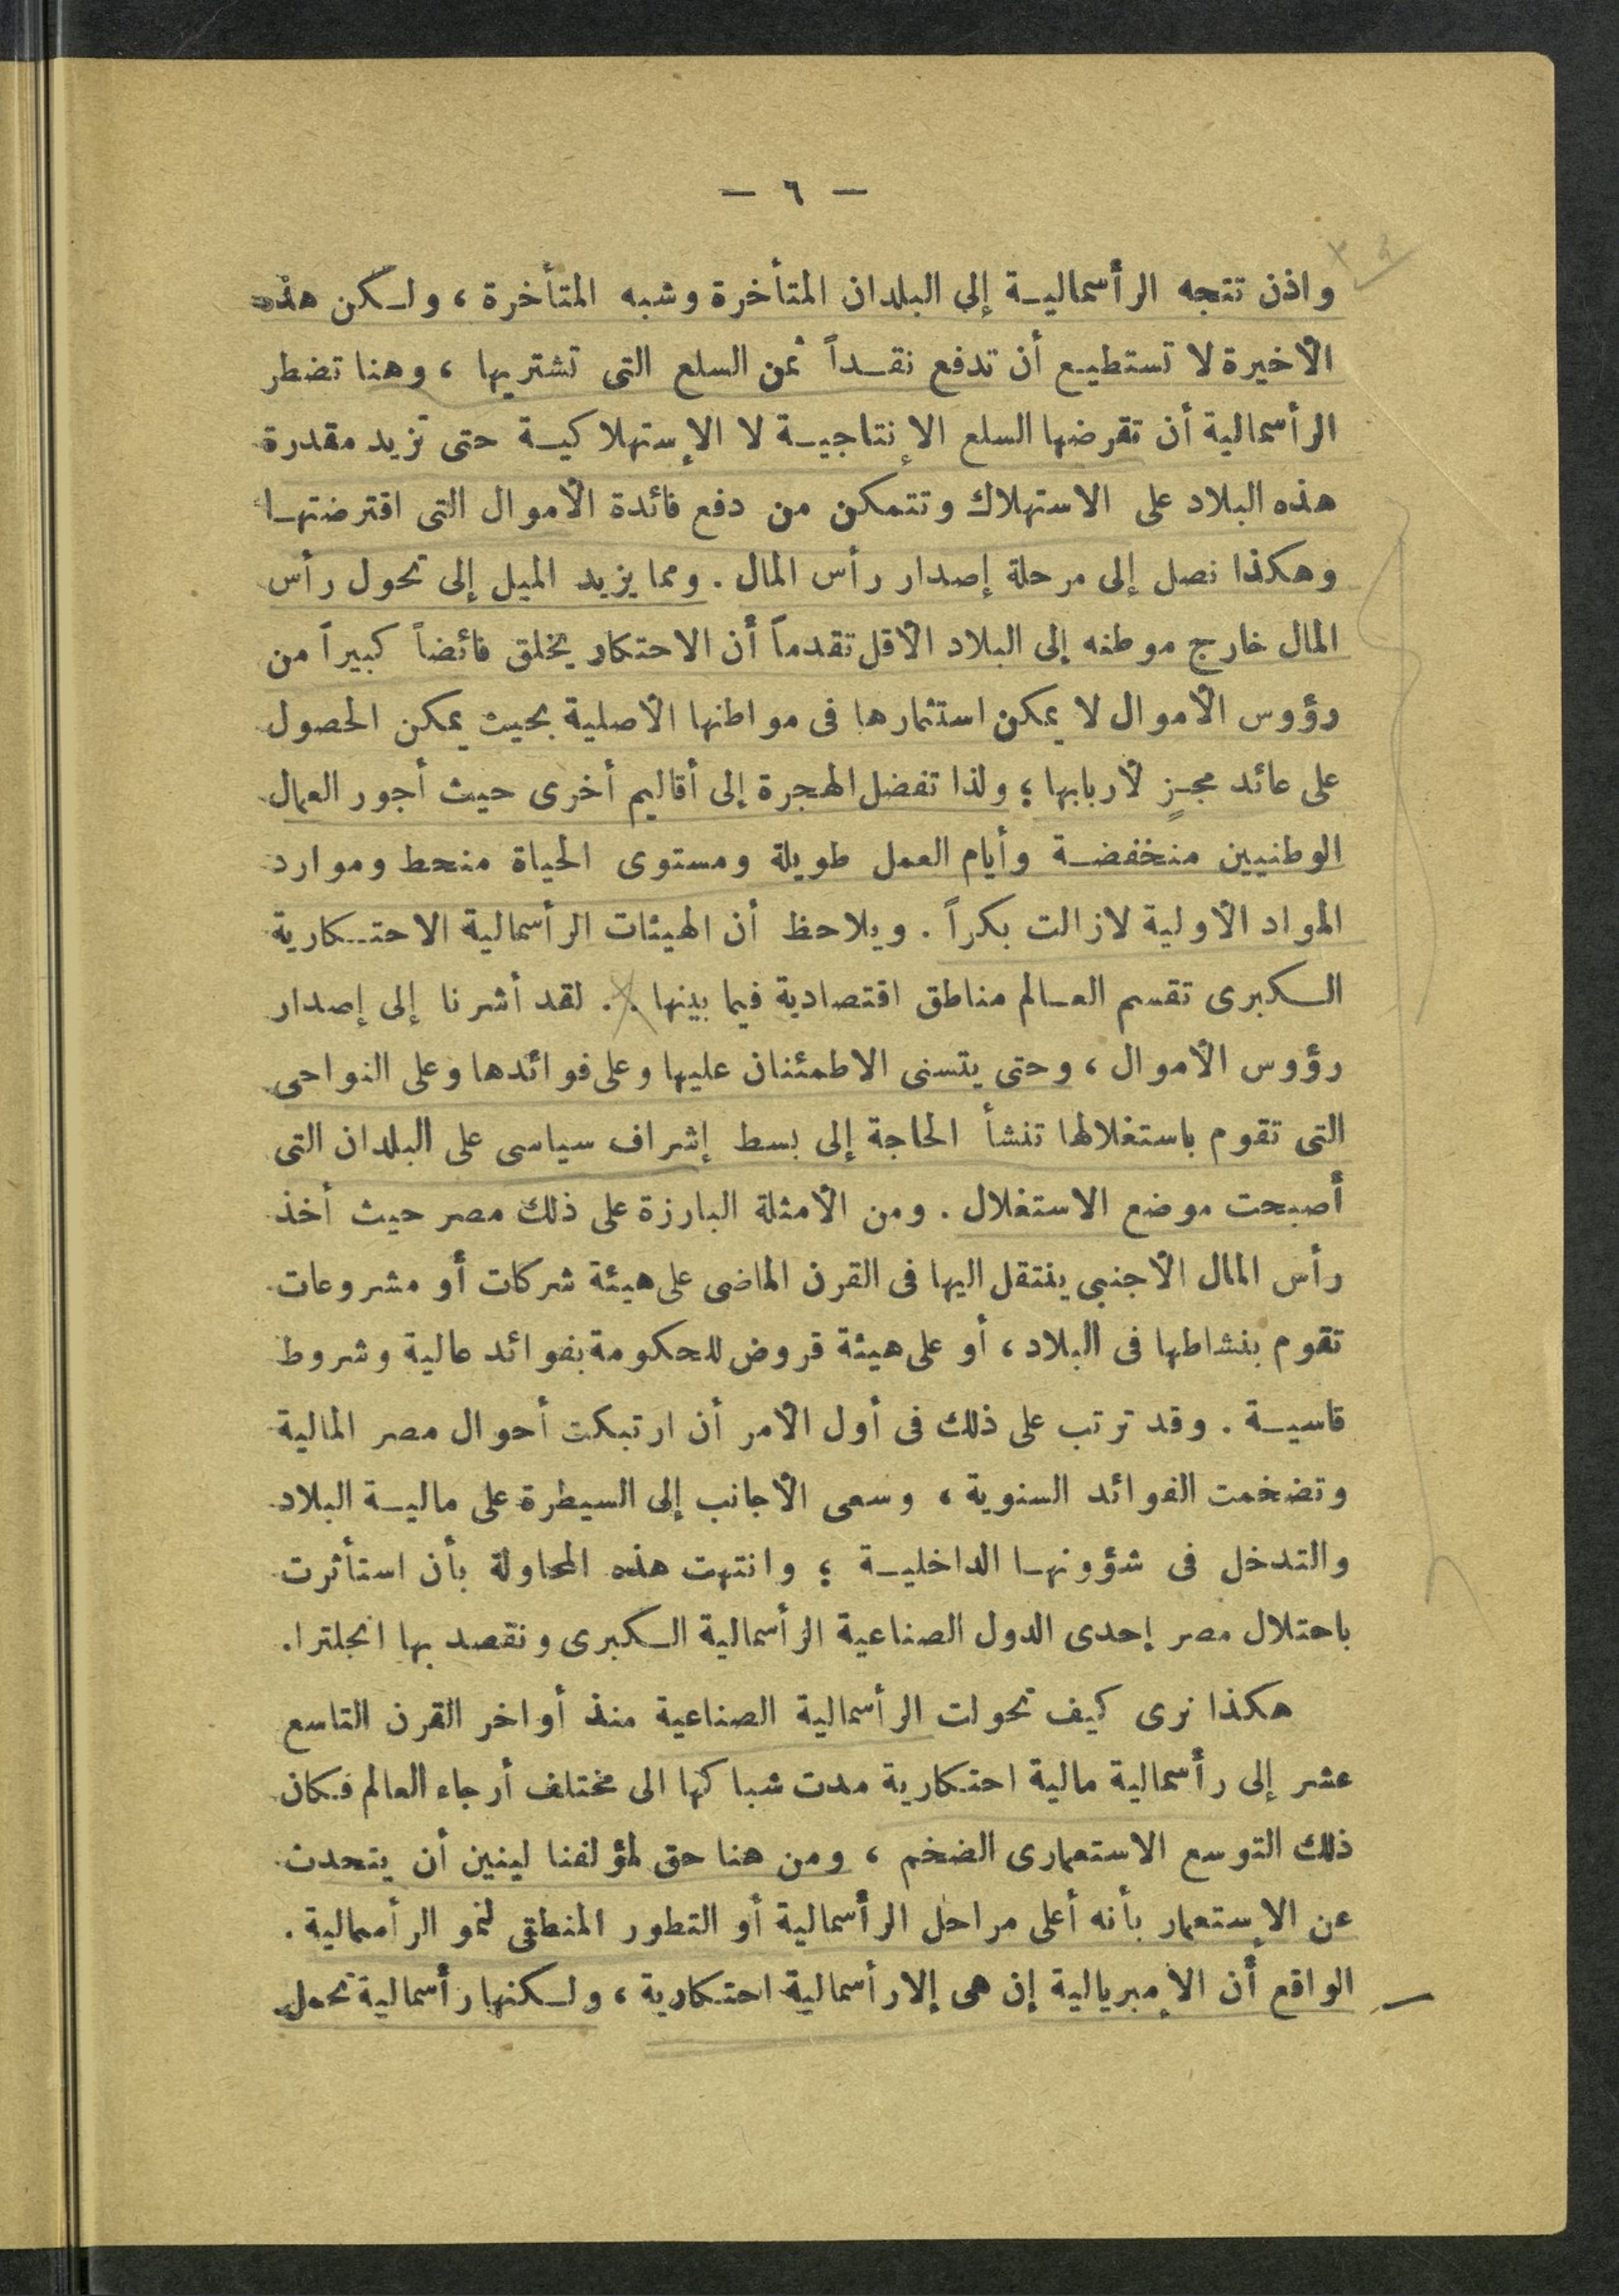 — ٦ —
واذن تتجه الرأسمالية إلى البلدان المتأخرة وشبه المتأخرة ، ولكن هذه
الأخيرة لا تستطيع أن تدفع نقداً ثمن السلع التى تشتريها ، وهنا تضطر
الرأسمالية أن تقرضها السلع الإنتاجية لا الإستهلاكية حتى تزيد مقدرة
هذه البلاد على الاستهلاك وتتمكن من دفع فائدة الأموال التى اقترضتها
وهكذا نصل إلى مرحلة إصدار رأس المال . ومما يزيد الميل إلى تحول رأس
المال خارج موطنه إلى البلاد الأقل تقدماً أن الاحتكار يخلق فائضاً كبيراً من
رؤوس الأموال لا يمكن استثمارها فى مواطنها الأصلية بحيث يمكن الحصول
على عائد مجزٍ لأربابها ؛ ولذا تفضل الهجرة إلى أقاليم أخرى حيث أجور العمال
الوطنيين منخفضة وأيام العمل طويلة ومستوى الحياة منحط وموارد
المواد الأولية لازالت بكراً . ويلاحظ أن الهيئات الرأسمالية الاحتكارية
الكبرى تقسم العالم مناطق اقتصادية فيما بينها . . لقد أشرنا إلى إصدار
رؤوس الأموال ، وحتى يتسنى الاطمئنان عليها وعلى فوائدها وعلى النواحى
التى تقوم باستغلالها تنشأ الحاجة إلى بسط إشراف سياسى على البلدان التى
أصبحت موضع الاستغلال . ومن الأمثلة البارزة على ذلك مصر حيث أخذ
رأس المال الأجنبي ينتقل اليها فى القرن الماضى على هيئة شركات أو مشروعات
تقوم بنشاطها فى البلاد ، أو على هيئة قروض للحكومة بفوائد عالية وشروط
قاسية . وقد ترتب على ذلك فى أول الأمر أن ارتبكت أحوال مصر المالية
وتضخمت الفوائد السنوية ، وسعى الأجانب إلى السيطرة على مالية البلاد
والتدخل فى شؤونها الداخلية ؛ وانتهت هذه المحاولة بأن استأثرت
باحتلال مصر إحدى الدول الصناعية الرأسمالية الكبرى ونقصد بها انجلترا.
هكذا نرى كيف تحولت الرأسمالية الصناعية منذ أواخر القرن التاسع
عشر إلى رأسمالية مالية احتكارية مدت شباكها الى مختلف أرجاء العالم فكان
ذلك التوسع الاستعمارى الضخم ، ومن هنا حق لمؤلفنا لينين أن يتحدث
عن الإستعمار بأنه أعلى مراحل الرأسمالية أو التطور المنطقى لنمو الرأسمالية .
الواقع أن الإمبريالية إن هى إلا رأسمالية احتكارية ، ولكنها رأسمالية تحمل